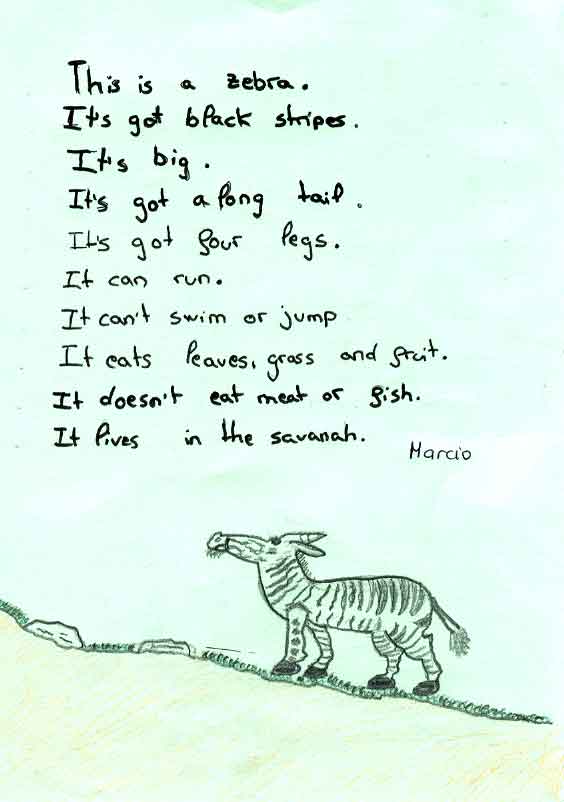 This is a zebra.
It's got black stripes.
It's big.
It's got a long tail.
It's got four legs.
It can run.
It can't swim or jump
It eats leaves, grass and fruit.
It doesn't eat meat or fish.
It lives in the savanah.
Marcio